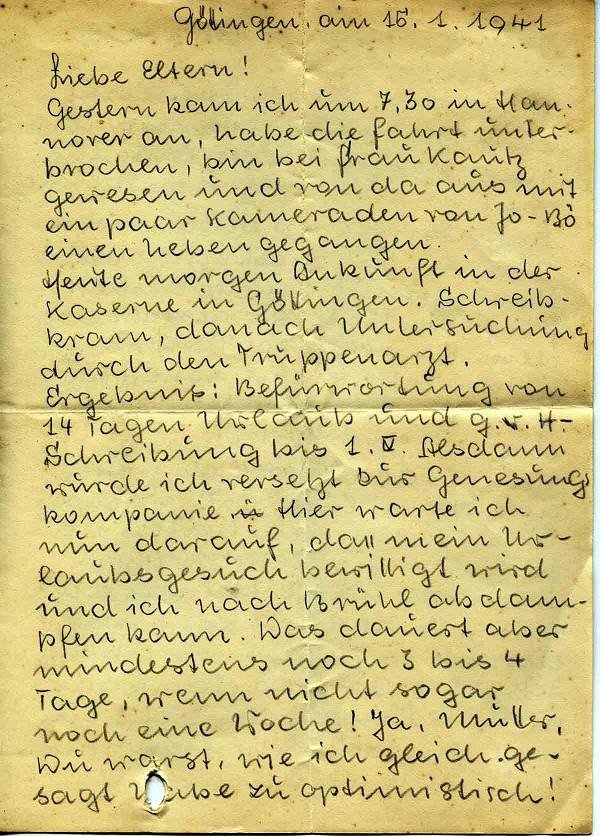 Göttingen, am 15. 1. 1941
Liebe Eltern!
Gestern kam ich um 7,30 in Han-
nover an, habe die Fahrt unter-
brochen, bin bei Frau Kautz
gewesen und von da aus mit
ein paar Kameraden von Jo-Bö
einen heben gegangen.
Heute morgen Ankunft in der
Kaserne in Göttingen. Schreib-
kram, danach Untersuchung
durch den Truppenarzt.
Ergebnis: Befürwortung von
14 Tagen Urlaub und g.v.H-
Schreibung bis 1. IV. Alsdann
wurde ich versetzt zur Genesungs
kompanie. Hier warte ich
nun darauf, daß mein Ur-
laubsgesuch bewilligt wird
und ich nach Brühl abdam-
pfen kann. Das dauert aber
mindestens noch 3 bis 4
Tage, wenn nicht sogar
noch eine Woche! Ja, Mutter,
Du warst, wie ich gleich ge-
sagt habe zu optimistisch!